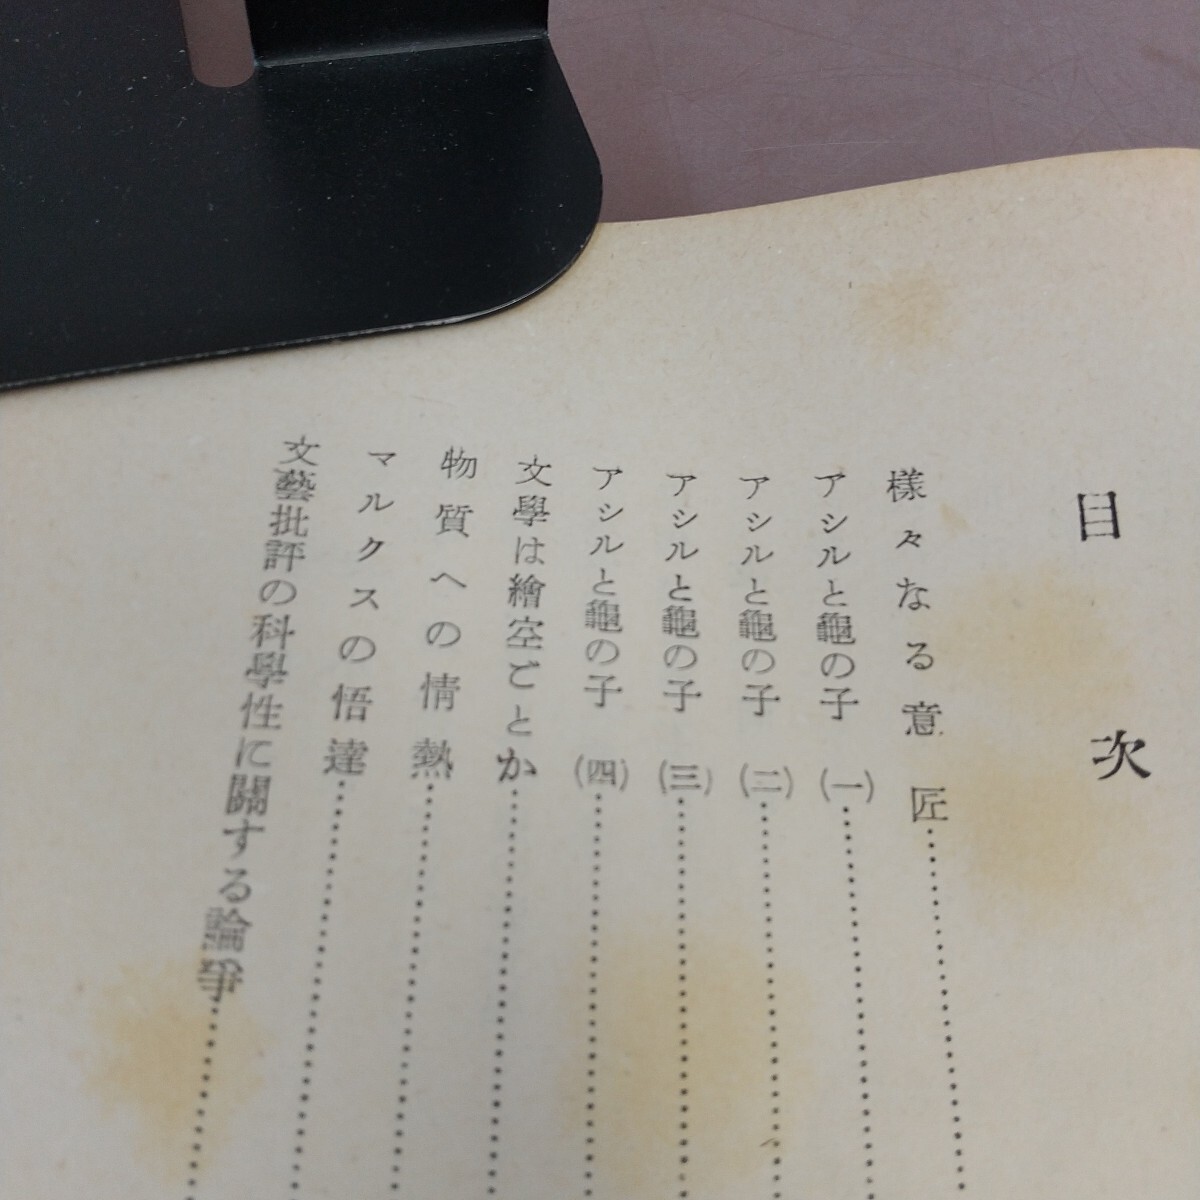 目次
樣々なる意匠
アシルと龜の子 (一)
アシルと龜の子 (二)
アシルと龜の子 (三)
アシルと龜の子 (四)
文學は繪空ごとか
物質への情熱
マルクスの悟達
文藝批評の科學性に關する論爭